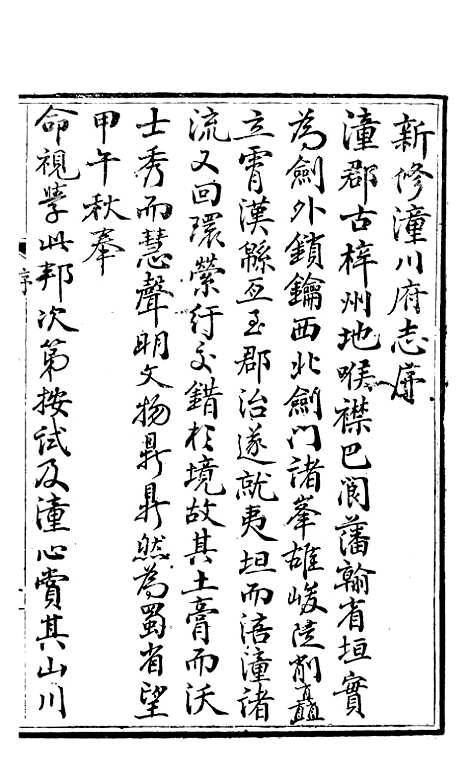 新修潼川府志序
潼郡古梓州地喉襟巴閬藩翰省垣實
為劍外鎖鑰西北劍門諸峯雄峻陡削矗
立霄漢緜亙至郡治遂就夷坦而涪潼諸
流又回環縈紆交錯於境故其土膏而沃
士秀而慧聲明文物鼎鼎然為蜀省望
甲午秋奉
命視學此邦次第按試及潼心賞其山川
序